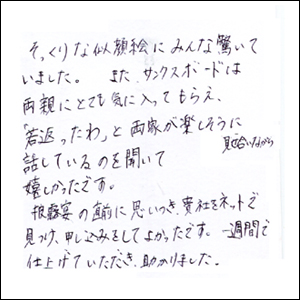 そっくりな似顔絵にみんな驚いて
いました。 また、サンクスボードは
両親にとても気に入ってもらえ、
「若返ったわ」と両家が楽しそうに
見せ合いながら
話しているのを聞いて
嬉しかったです。
披露宴の直前に思いつき、貴社をネットで
見つけ、申し込みをしてよかったです。一週間で
仕上げていただき、助かりました。